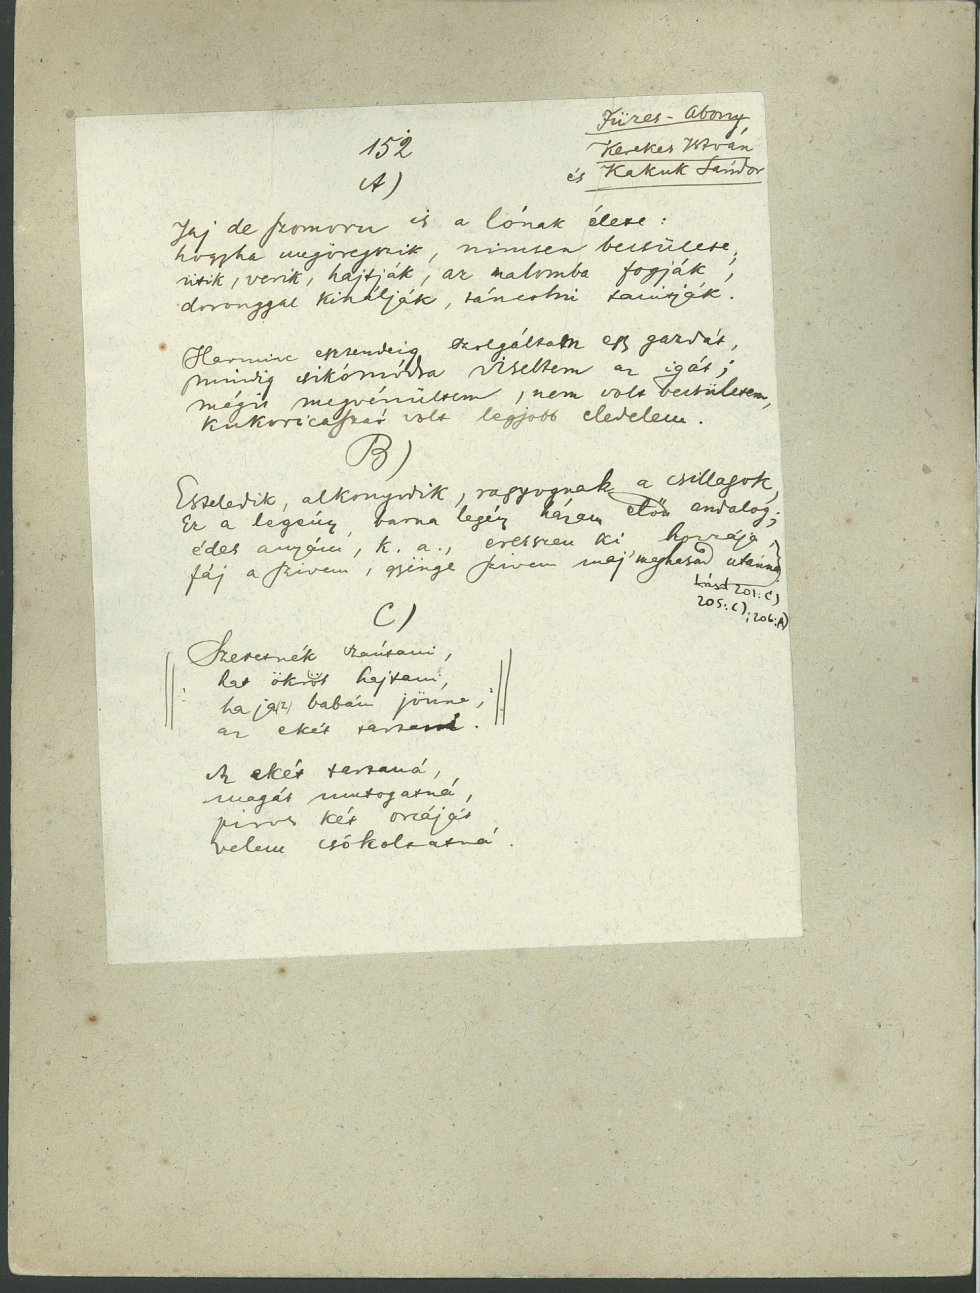 Füzes-Abony
Kerekes István
és Kakuk Sándor
152
A)
Jaj de szomoru is a lónak élete:
hogyha megöregszik, nincsen becsülete;
ütik, verik, hajtják, az malomba fogják;
doronggal kinálják, táncolni tanitják.
Harminc esztendeig szolgáltam egy gazdát,
mindig csikómódra viseltem az igát;
mégis megvénültem, nem volt becsületem,
kukoricaszár volt legjobb eledelem.
B)
Esteledik, alkonyodik, ragyognak a csillagok,
Ez a legény, barna legény házam előtt andalog;
édes anyám, k. a., eresszen ki hozzája,
fáj a szivem, gyönge szivem maj' meghasad utánna
Lásd 201: C)
205: C); 206: A)
C)
Szeretnék szántani,
hat ökröt hajtani,
ha ja(z) babám jönne,
az ekét tartani.
Az ekét tartaná,
magát mutogatná,
piros két orcáját
velem csókoltatná.